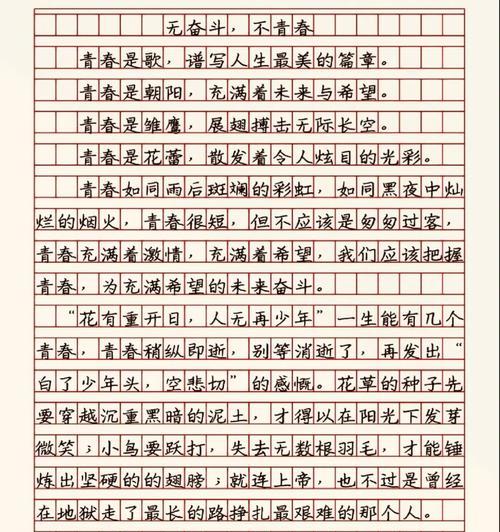 无奋斗，不青春
青春是歌，谱写人生最美的篇章。
青春是朝阳，充满着未来与希望。
青春是雏鹰，展翅搏击无际长空。
青春是花蕾，散发着令人炫目的光彩。
青春如同雨后斑斓的彩虹，如同黑夜中灿
烂的烟火，青春很短，但不应该是匆匆过客，
青春充满着激情，充满着希望，我们应该把握
青春，为充满希望的未来奋斗。
“花有重开日，人无再少年”一生能有几个
青春，青春稍纵即逝，别等消逝了，再发出“
白了少年头，空悲切”的感慨。花草的种子先
要穿越沉重黑暗的泥土，才得以在阳光下发芽
微笑；小鸟要跌打，失去无数根羽毛，才能锤
炼出坚硬的的翅膀；就连上帝，也不过是曾经
在地狱走了最长的路挣扎最艰难的那个人。